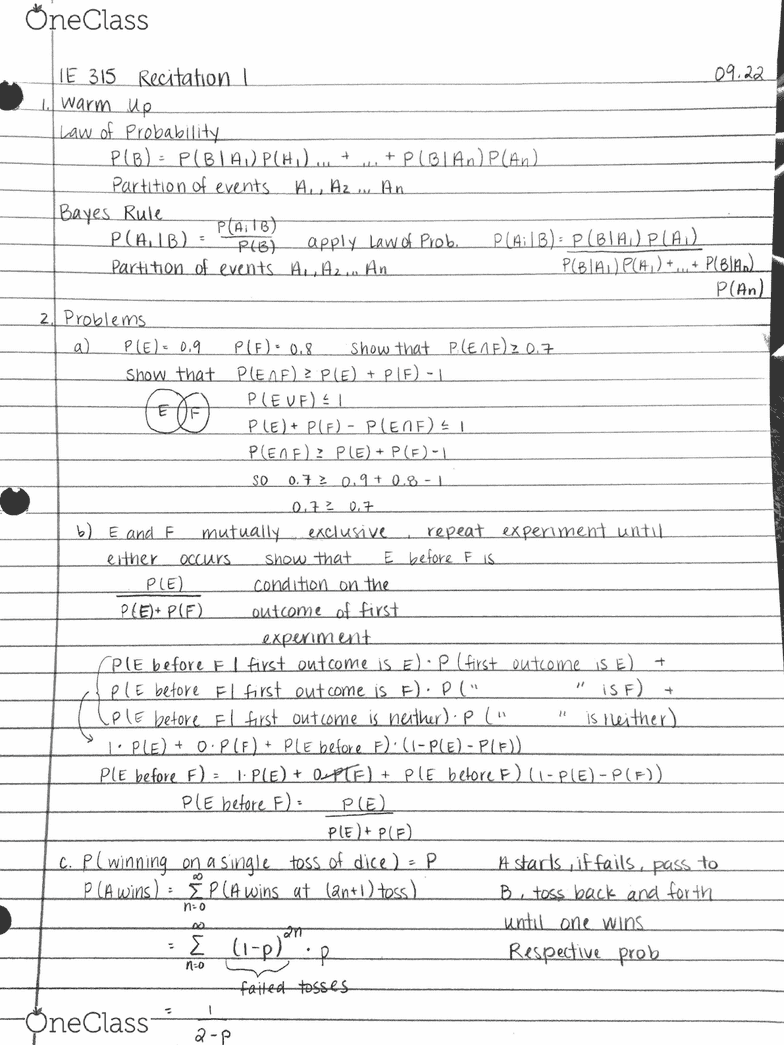 OneClass
IE 315 Recitation 1 09.22
1. Warm Up
Law of Probability
P(B) = P(B|A₁)P(A₁)... + ... + P(B|An)P(An)
Partition of events A₁, A₂ ... An
Bayes Rule
P(A₁|B) = P(A,|B) / P(B) apply Law of Prob. P(Ai|B) = P(B|A₁)P(A₁) / P(B|A₁)P(A₁)+...+ P(B|An) P(An)
Partition of events A₁, A₂ ... An
2. Problems
a) P(E) = 0.9 P(F) = 0.8 Show that P(E∩F) ≥ 0.7
Show that P(E∩F) ≥ P(E) + P(F) - 1
E F P(E∪F) ≤ 1
P(E) + P(F) - P(E∩F) ≤ 1
P(E∩F) ≥ P(E) + P(F) - 1
SO 0.7 ≥ 0.9 + 0.8 - 1
0.7 ≥ 0.7
b) E and F mutually exclusive, repeat experiment until
either occurs show that E before F is
P(E) / P(E) + P(F) condition on the
outcome of first
experiment
P(E before F | first outcome is E) · P(first outcome is E) +
P(E before F | first outcome is F) · P(" " is F) +
P(E before F | first outcome is neither) · P(" " is neither)
1 · P(E) + 0 · P(F) + P(E before F) · (1 - P(E) - P(F))
P(E before F) = 1 · P(E) + 0 · P(F) + P(E before F)(1 - P(E) - P(F))
P(E before F) = P(E) / P(E) + P(F)
c. P(winning on a single toss of dice) = P A starts, if fails, pass to
P(A wins) = ∞ Σ n=0 P(A wins at (2n+1) toss) B, toss back and forth
until one wins
= ∞ Σ n=0 (1-p)²ⁿ · p Respective prob
failed tosses
= 1 / 2-p
OneClass